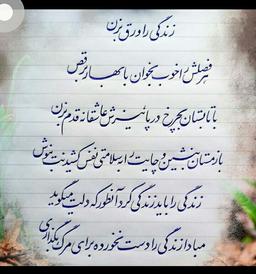 زندگی را ورق بزن
هر فصلش را خوب بخوان با بهار برقص
با تابستان بچرخ در پائیزش عاشقانه قدم بزن
با زمستان بنشین و چایت را به سلامتی نفس کشیدنت بنوش
زندگی را باید زندگی کرد آنطور که دلت میگوید
مبادا زندگی را دست نخورده برای مرگ بگذاری